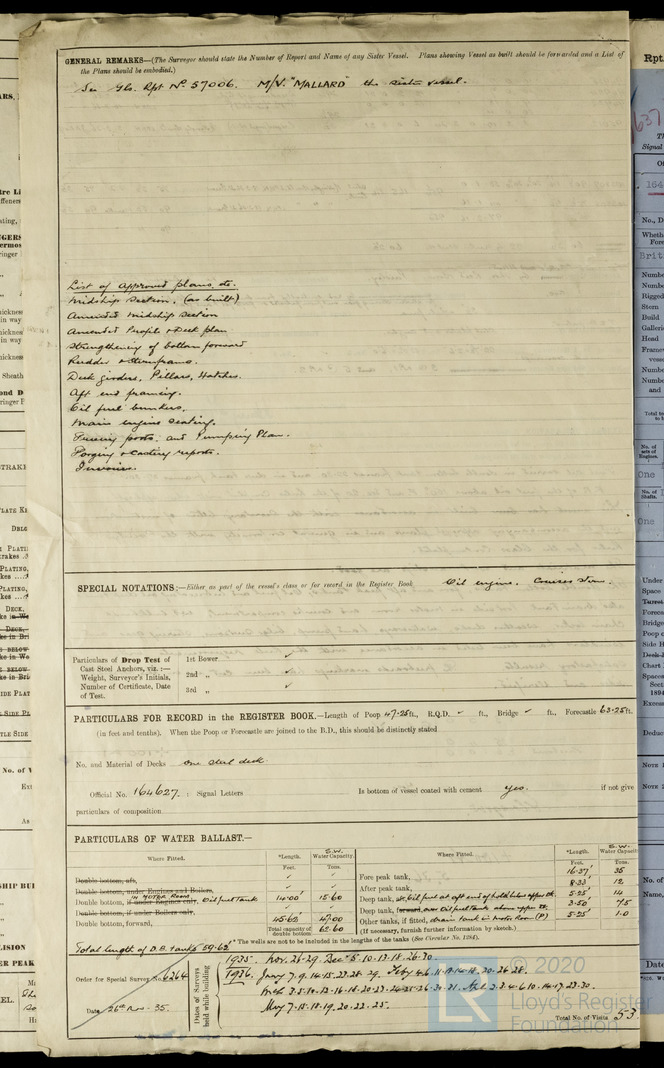 GENERAL REMARKS—(The Surveyor should state the Number of Report and Name of any Sister Vessel. Plans showing Vessel as built should be forwarded and a List of
the Plans should be embodied.)
See Gls. Rpt No. 57006. M/V. "MALLARD" the sister vessel.
List of Approved plans, etc.
Midship Section. (as built)
Amended Midship Section
Amended Profile & Deck plan
Strengthening of bottom forward
Rudder & Sternframe.
Deck girders, Pillars, Hatches.
Aft end framing.
Oil fuel bunkers.
Main engine seating.
Freeing ports, and Pumping Plan.
Forging & Casting reports.
Invoices.
SPECIAL NOTATIONS:—Either as part of the vessel's class or for record in the Register Book
Oil engine. Cruiser stern.
Particulars of Drop Test of
Cast Steel Anchors, viz.:—
Weight, Surveyor's Initials,
Number of Certificate, Date
of Test.
1st Bower ✓
2nd „ ✓
3rd „ ✓
PARTICULARS FOR RECORD in the REGISTER BOOK.—Length of Poop 47·25 ft., R.Q.D. ✓ ft., Bridge ✓ ft., Forecastle 63·25 ft.
(in feet and tenths). When the Poop or Forecastle are joined to the B.D., this should be distinctly stated
No. and Material of Decks one steel deck
Official No. 164627. : Signal Letters Is bottom of vessel coated with cement yes. if not give
particulars of composition
PARTICULARS OF WATER BALLAST.—
Where Fitted. *Length. S.W. Water Capacity. Where Fitted. *Length. S.W. Water Capacity.
Feet. Tons. Feet. Tons.
Double bottom, aft, ✓ ✓ Fore peak tank, 16·37' 35
Double bottom, under Engines and Boilers, ✓ ✓ After peak tank, 8·33 12
Double bottom, if under Engines only, IN MOTOR ROOM Oil fuel tank 14·00' 15·60 Deep tank, 5·25' 14
Double bottom, if under Boilers only, ✓ Deep tank, 3·50 7·5
Double bottom, forward, 45·63' 47·00 Other tanks, if fitted, drain tank in motor room (P) 5·25' 1·0
Total capacity of double bottom 62·60 (If necessary, furnish further information by sketch.)
Total length of D.B. tanks 59·63' * The wells are not to be included in the lengths of the tanks (See Circular No. 1284).
Order for Special Survey No. 6264
Date 26th Nov. 35.
Dates of Surveys held while building
1935. Nov. 26·29. Dec. 5·10·13·18·26·30.
1936. Jany 7·9·14·15·23·28·29. Feby
May 7·15·18·19·20·22·25.
Total No. of Visits 53
© 2020
LR
Lloyd's Register
Foundation